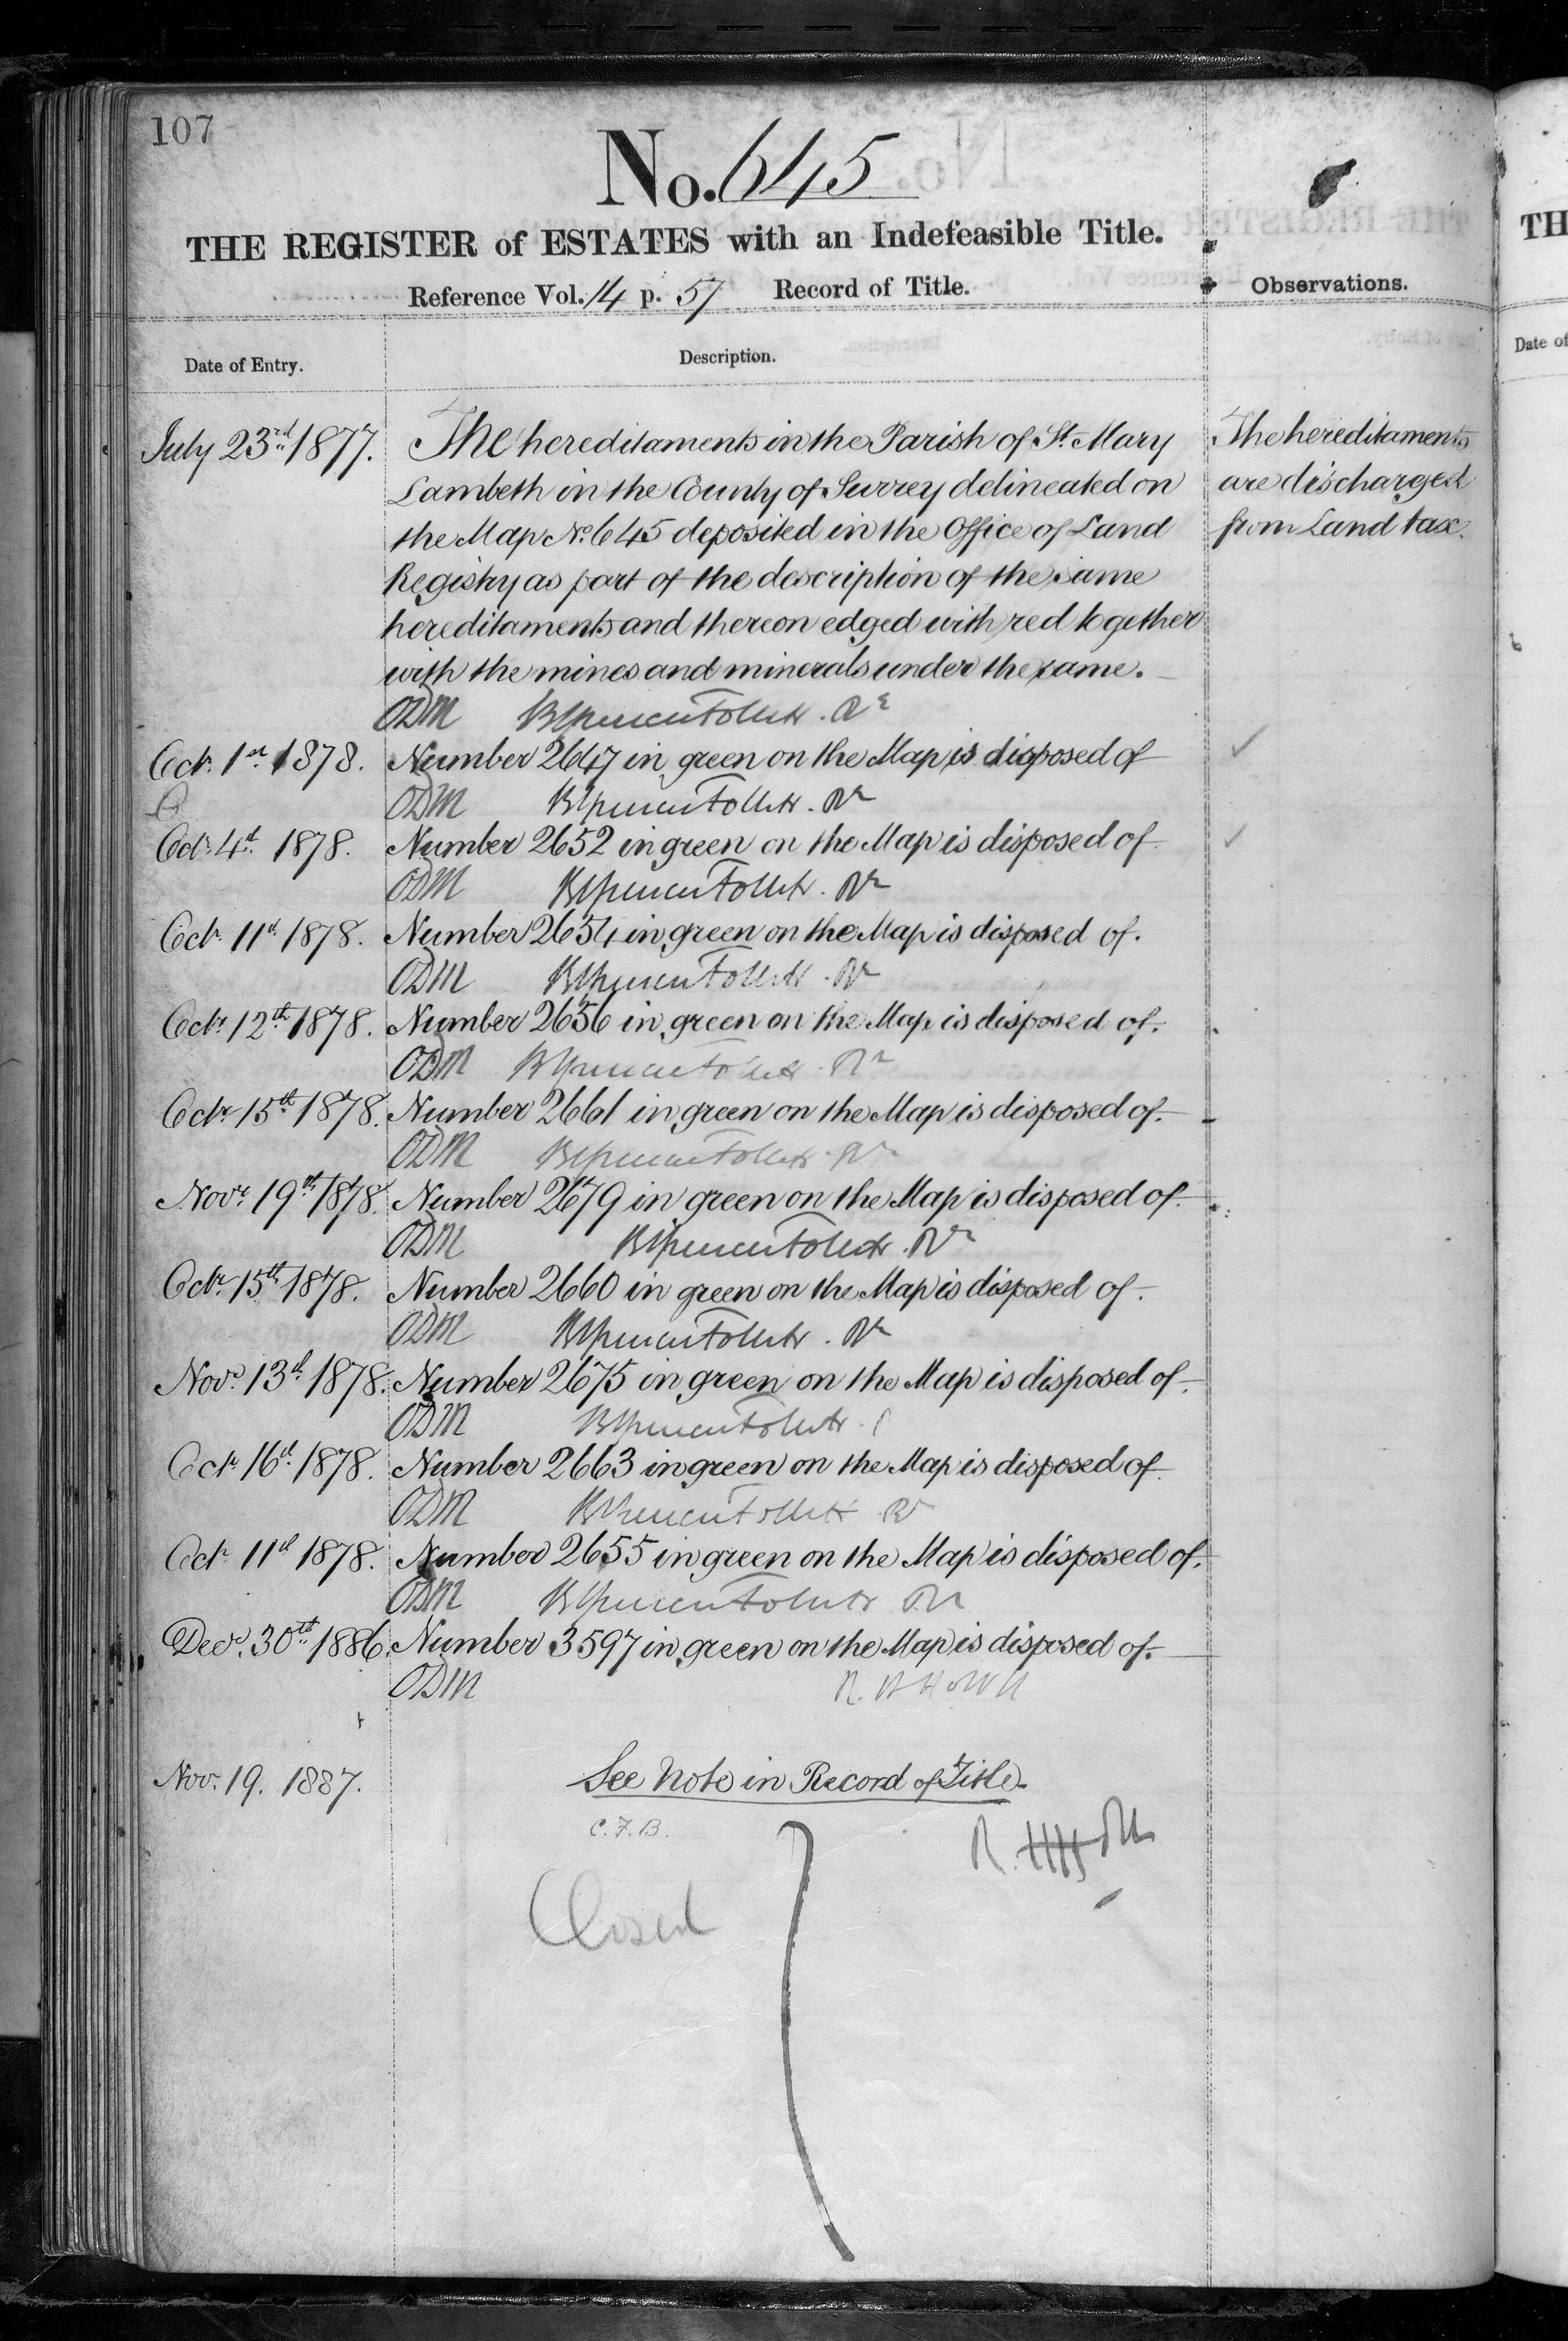 107
No. 645
THE REGISTER of ESTATES with an Indefeasible Title.
Reference Vol. 14 p. 57 Record of Title.
Observations.
Date of Entry.
Description.
July 23rd 1877. The hereditaments in the Parish of St. Mary
Lambeth in the County of Surrey delineated on
the Map No. 645 deposited in the Office of Land
Registry as part of the description of the same
hereditaments and thereon edged with red together
with the mines and minerals under the same.
The hereditaments
are discharged
from Land tax.
ODM
Octr. 1st 1878. Number 2647 in green on the Map is disposed of
ODM
Octr. 4th 1878. Number 2652 in green on the Map is disposed of
ODM
Octr. 11th 1878. Number 2654 in green on the Map is disposed of.
ODM
Octr. 12th 1878. Number 2656 in green on the Map is disposed of.
ODM
Octr. 15th 1878. Number 2661 in green on the Map is disposed of.
ODM
Novr. 19th 1878. Number 2679 in green on the Map is disposed of.
ODM
Octr. 15th 1878. Number 2660 in green on the Map is disposed of.
ODM
Novr. 13th 1878. Number 2675 in green on the Map is disposed of.
ODM
Octr. 16th 1878. Number 2663 in green on the Map is disposed of
ODM
Octr. 11th 1878. Number 2655 in green on the Map is disposed of.
ODM
Decr. 30th 1886. Number 3597 in green on the Map is disposed of.
ODM
Nov. 19. 1887. See Note in Record of Title.
C.F.B.
Closed
TH
Date of